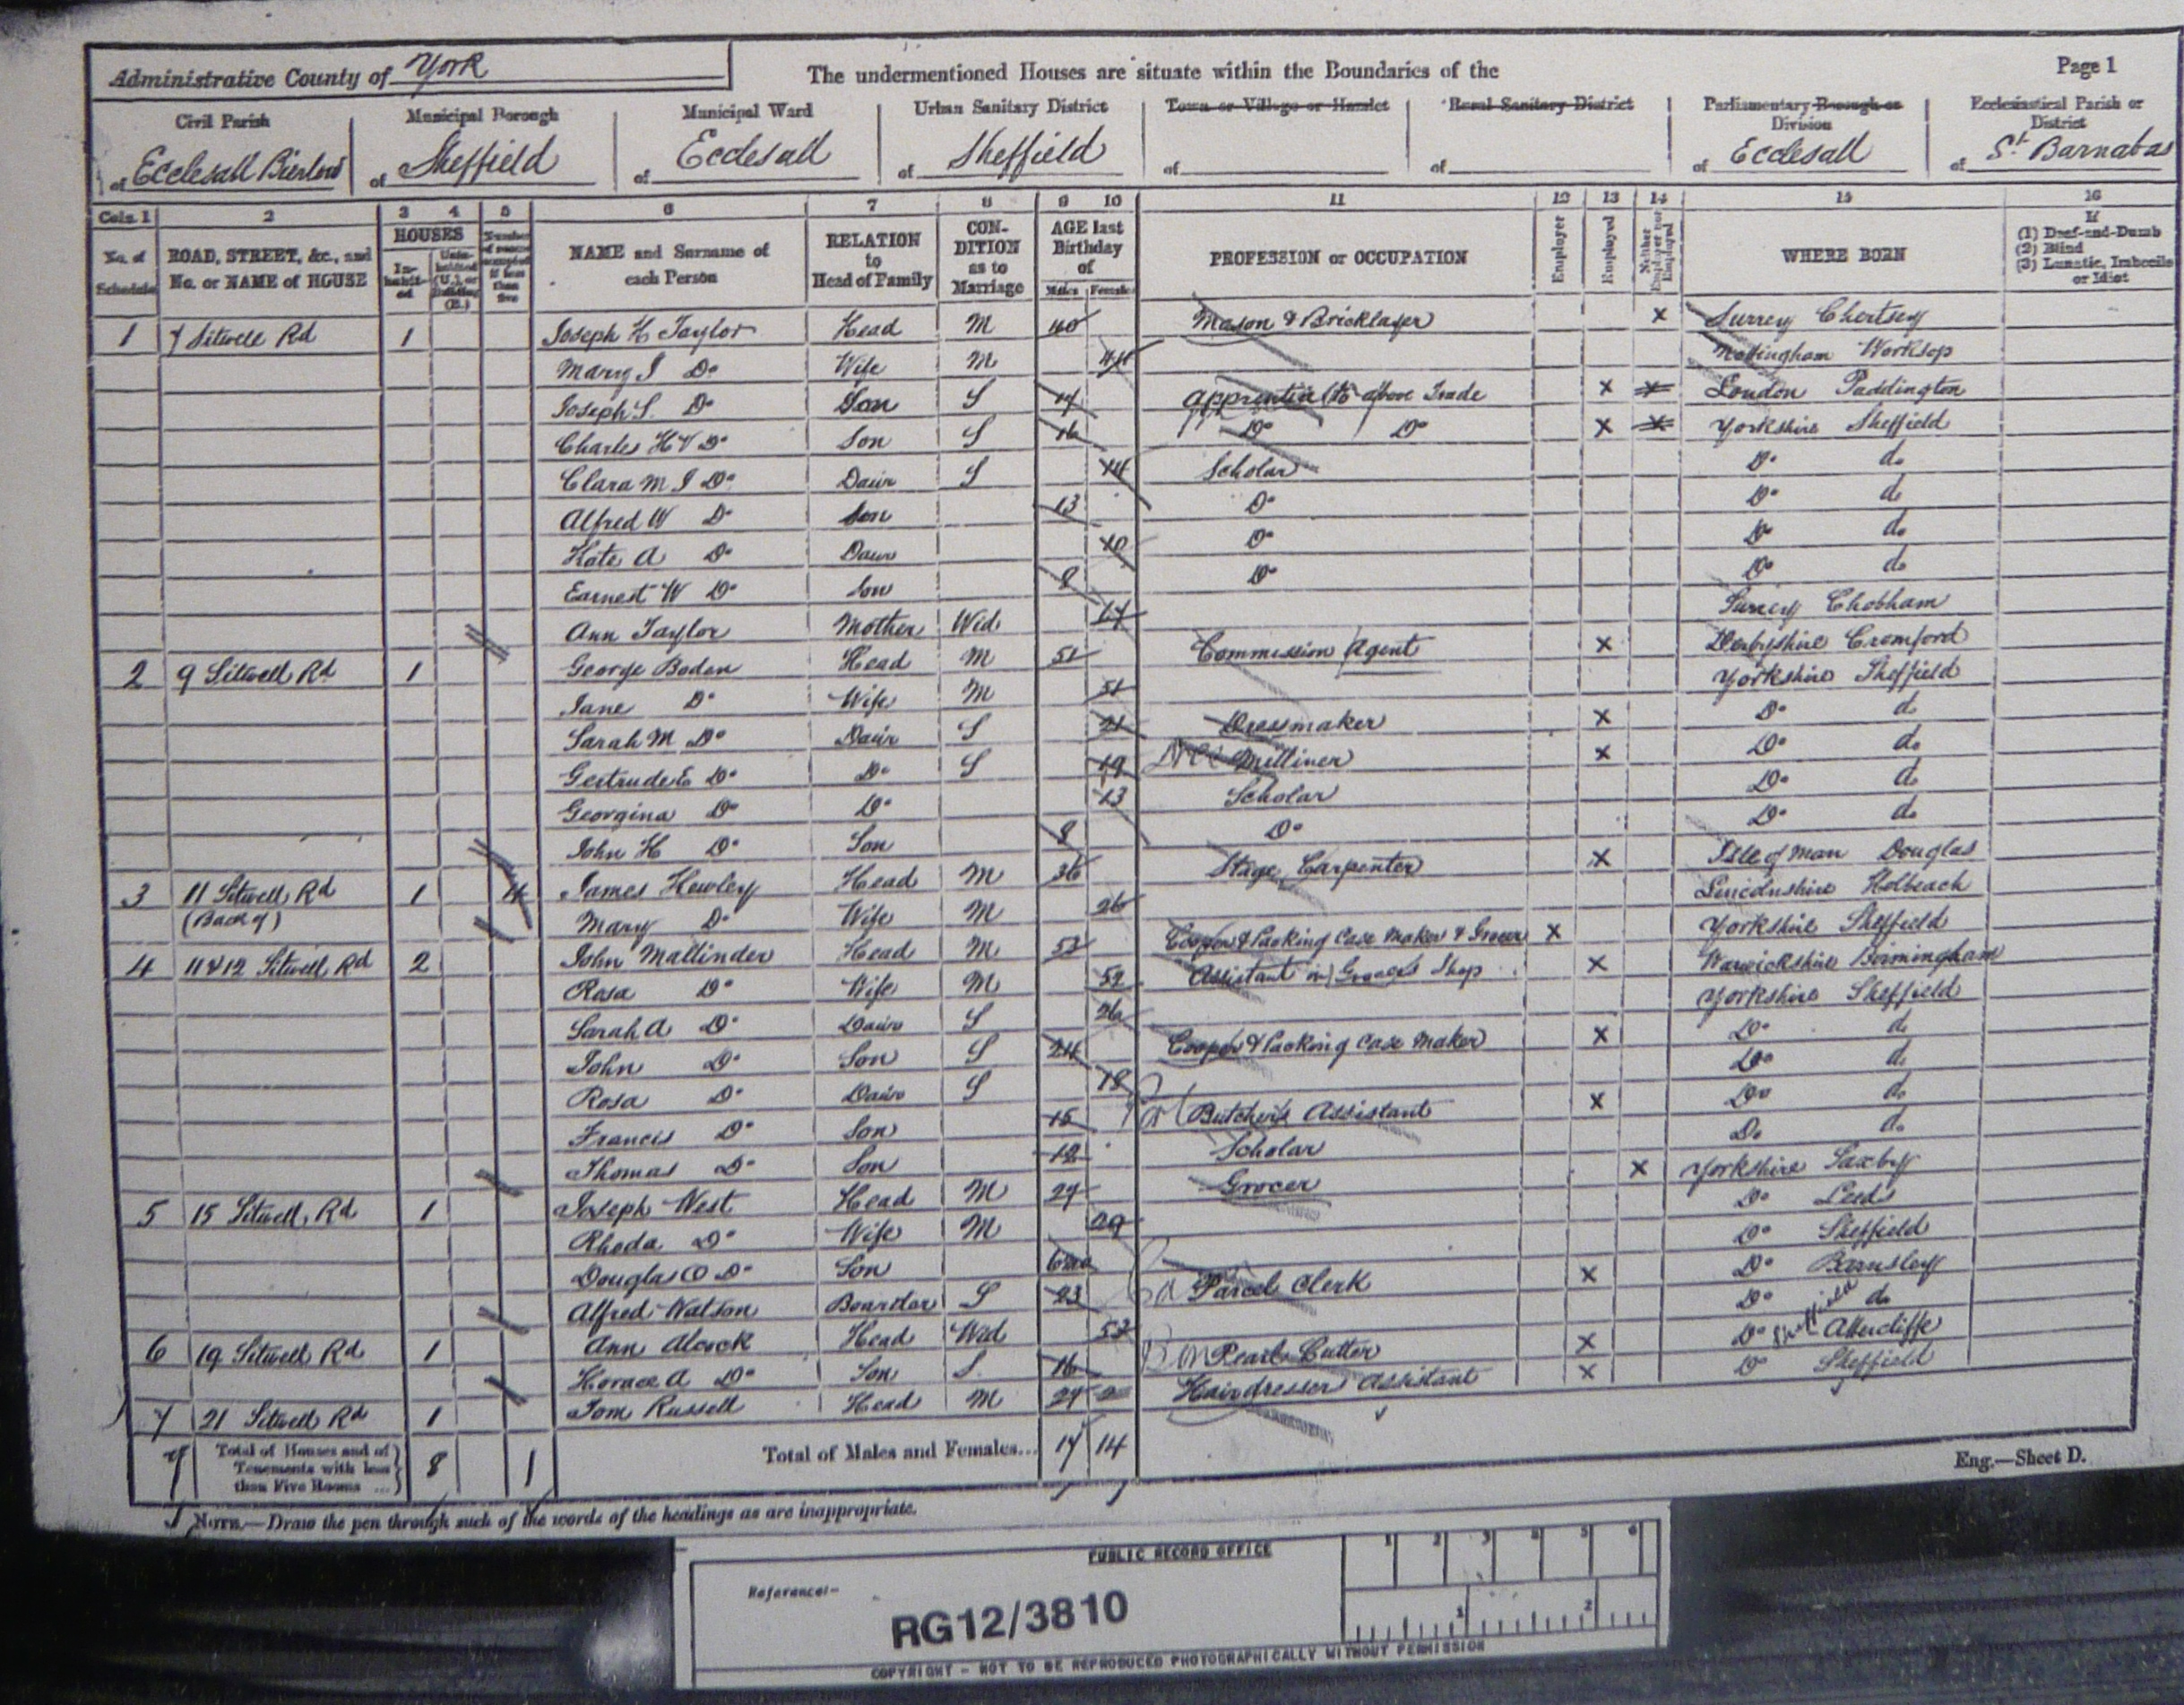 Administrative County of York The undermentioned Houses are situate within the Boundaries of the Page 1
Civil Parish Municipal Borough Municipal Ward Urban Sanitary District Town or Village or Hamlet Rural Sanitary District Parliamentary Borough or Division Ecclesiastical Parish or District
of Ecclesall Bierlow of Sheffield of Ecclesall of Sheffield of of of Ecclesall of St. Barnabas
Cols. 1 2 3 4 5 6 7 8 9 10 11 12 13 14 15 16
No. of Schedule ROAD, STREET, &c., and No. or NAME of HOUSE HOUSES In-habit-ed Unin-habited (U.), or Building (B.) Number of rooms occupied if less than five NAME and Surname of each Person RELATION to Head of Family CON-DITION as to Marriage AGE last Birthday of Males Females PROFESSION or OCCUPATION Employer Employed Neither Employer nor Employed WHERE BORN If (1) Deaf-and-Dumb (2) Blind (3) Lunatic, Imbecile or Idiot
1 7 Sitwell Rd 1 Joseph H Taylor Head M 40 Mason & Bricklayer X Surrey Chertsey
Mary J Do Wife M 44 Nottingham Worksop
Joseph S. Do Son S 17 Apprentice (to above Trade X X London Paddington
Charles H V Do Son S 16 Do Do X X Yorkshire Sheffield
Clara M J Do Daur S 14 Scholar Do do
Alfred W Do Son 13 Do Do do
Kate A Do Daur 10 Do Do do
Earnest W Do Son 8 Do Do do
Ann Taylor Mother Wid Surrey Chobham
2 9 Sitwell Rd 1 George Boden Head M 51 Commission Agent X Derbyshire Cromford
Jane Do Wife M 51 Yorkshire Sheffield
Sarah M Do Daur S 21 Dressmaker X Do do
Gertrude E Do Do S 19 Milliner X Do do
Georgina Do Do 13 Scholar Do do
John H Do Son 8 Do Do do
3 11 Sitwell Rd (Back of) 1 4 James Hewley Head M 36 Stage Carpenter X Isle of Man Douglas
Mary Do Wife M 26 Lincolnshire Holbeach
4 11 & 12 Sitwell Rd 2 John Mallinder Head M 53 Cooper & Packing Case Maker & Grocer X Yorkshire Sheffield
Rosa Do Wife M 52 Assistant in Grocers Shop X Warwickshire Birmingham
Sarah A Do Daur S 26 Yorkshire Sheffield
John Do Son S 24 Cooper & Packing Case Maker X Do do
Rosa Do Daur S 18 Do do
Francis Do Son 15 Butcher's Assistant X Do do
Thomas Do Son 12 Scholar Do do
5 15 Sitwell Rd 1 Joseph West Head M 27 Grocer X Yorkshire Saxby
Rhoda Do Wife M 29 Do Leeds
Douglas O Do Son 6mo Do Sheffield
Alfred Watson Boarder S 23 Parcel Clerk X Do Barnsley
6 19 Sitwell Rd 1 Ann Alcock Head Wid 53 Do do
Horace A Do Son S 16 Pearl Cutter X Do Sheffield Attercliffe
7 21 Sitwell Rd 1 Tom Russell Head M 27 Hairdresser Assistant X Do Sheffield
7 Total of Houses and of Tenements with less than Five Rooms ... 8 1 Total of Males and Females... 17 14
Eng.—Sheet D.
NOTE.—Draw the pen through such of the words of the headings as are inappropriate.
PUBLIC RECORD OFFICE
1 2 3 4 5 6
Reference:-
RG12/3810
1 2
COPYRIGHT - NOT TO BE REPRODUCED PHOTOGRAPHICALLY WITHOUT PERMISSION